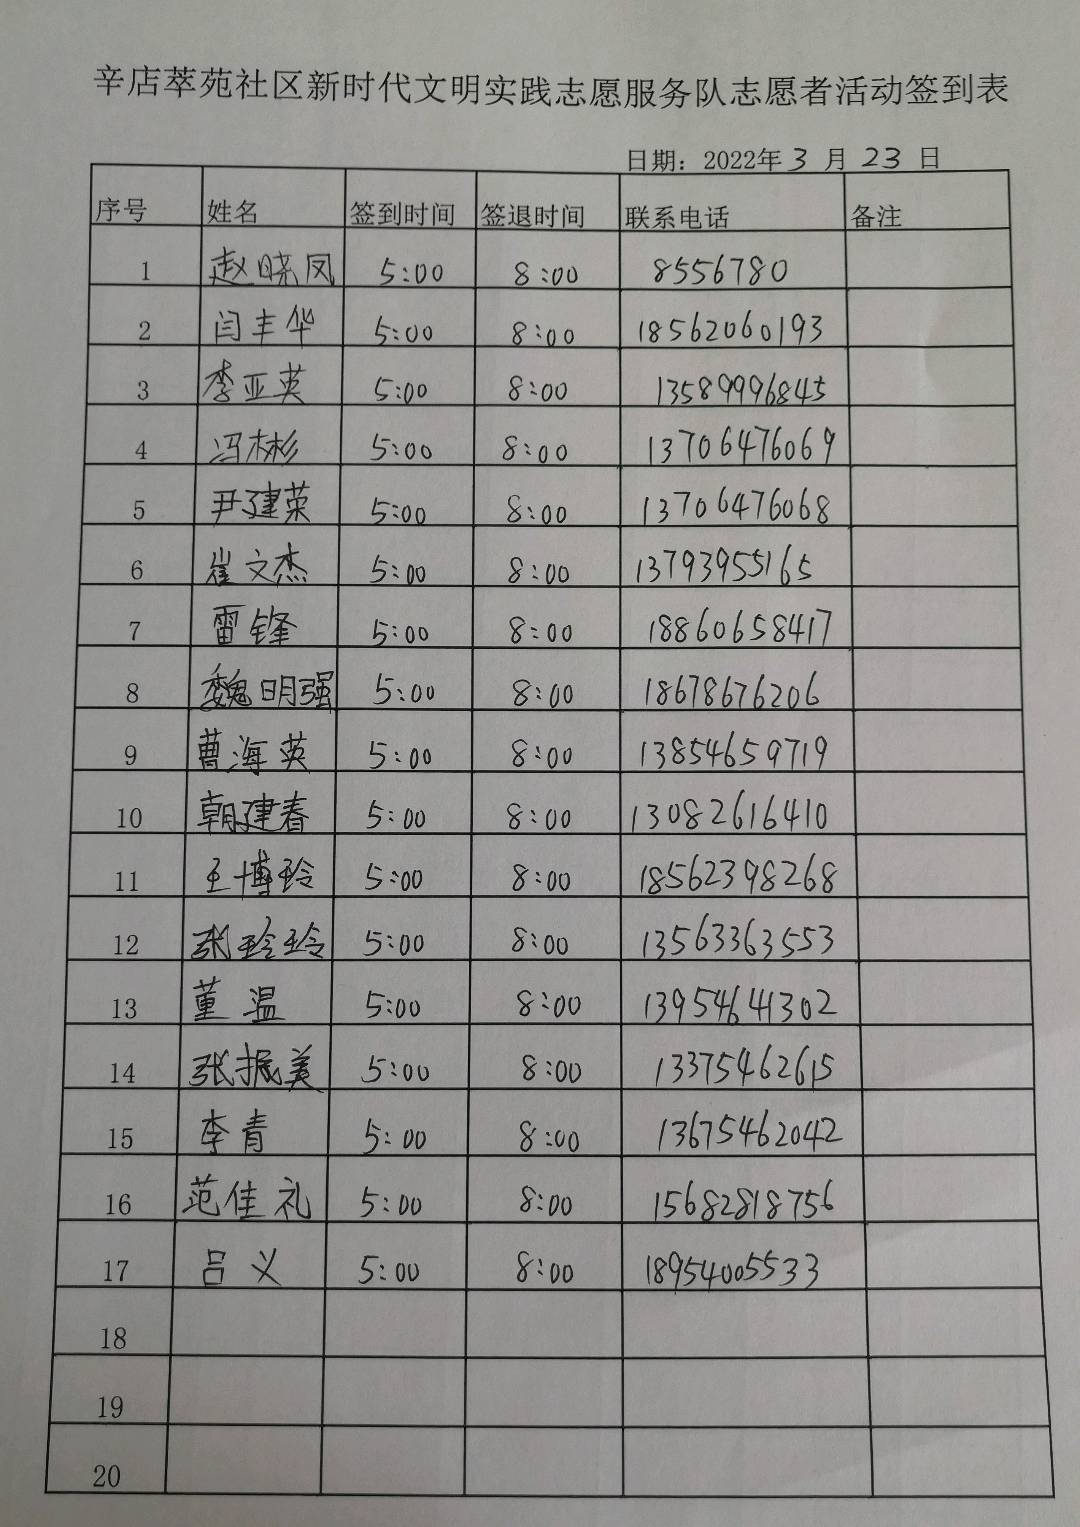 辛店萃苑社区新时代文明实践志愿服务队志愿者活动签到表
日期：2022年 3 月 23 日
序号 姓名 签到时间 签退时间 联系电话 备注
1 赵晓凤 5:00 8:00 8556780
2 闫丰华 5:00 8:00 18562060193
3 李亚英 5:00 8:00 13589996845
4 冯彬彬 5:00 8:00 13706476069
5 尹建荣 5:00 8:00 13706476068
6 崔文杰 5:00 8:00 13793955165
7 雷锋 5:00 8:00 18860658417
8 魏明强 5:00 8:00 18678676206
9 曹海英 5:00 8:00 13854659719
10 朝建春 5:00 8:00 13082616410
11 王博玲 5:00 8:00 18562398268
12 张玲玲 5:00 8:00 13563363553
13 董温 5:00 8:00 13954641302
14 张振美 5:00 8:00 13375462615
15 李青 5:00 8:00 13675462042
16 范佳礼 5:00 8:00 15682818756
17 吕义 5:00 8:00 18954005533
18
19
20